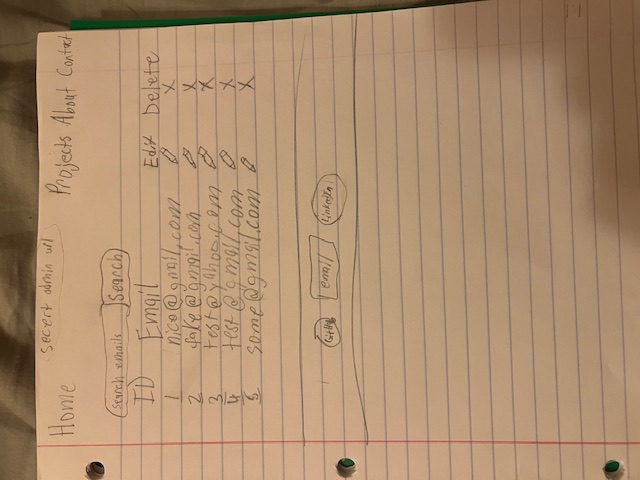 secert admin url
Home Projects About Contact
Search emails Search
ID Email Edit Delete
1 nico@gmail.com X
2 fake@gmail.com X
3 test@yahoo.com X
4 test@gmail.com X
5 some@gmail.com X
GitHub email LinkedIn